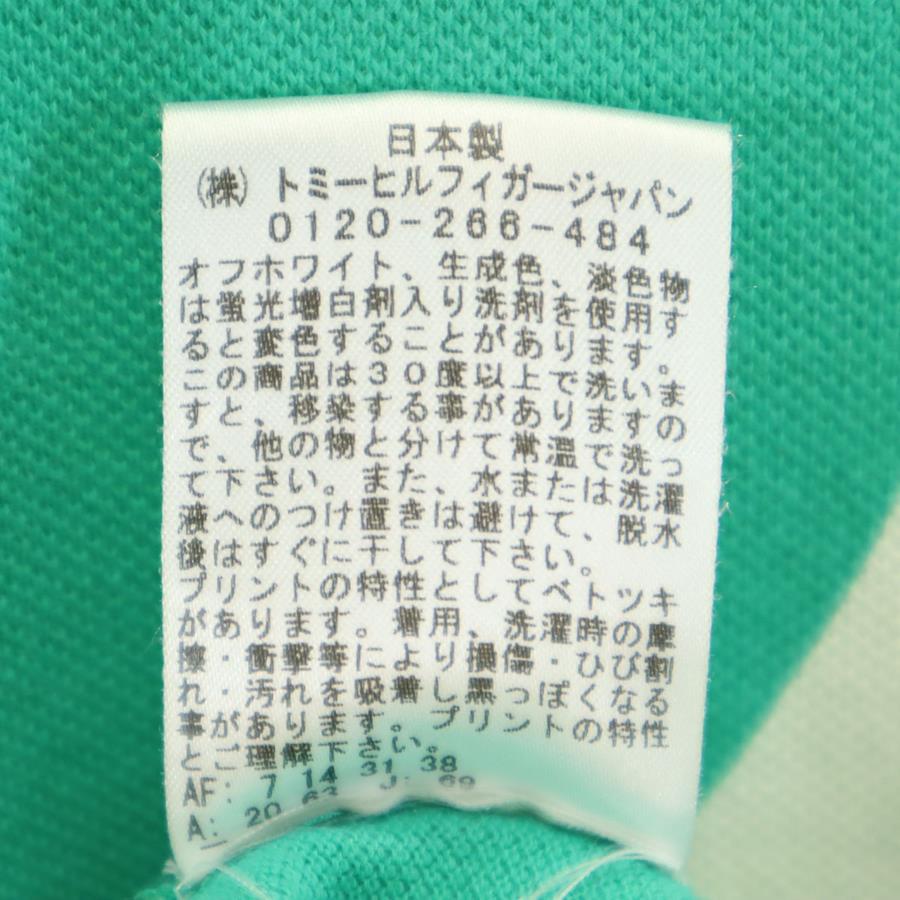 日本製
(株) トミーヒルフィガージャパン
0120-266-484
オフホワイト、生成色、淡色物
は蛍光増白剤入り洗剤を使用す
ると変色することがあります。
この商品は30度以上で洗いま
すと、移染する事がありますの
で、他の物と分けて常温で洗っ
て下さい。また、水または洗濯
液へのつけ置きは避けて、脱水
後はすぐに干して下さい。
プリントの特性としてベトツキ
があります。着用、洗濯時の摩
擦・衝撃等により損傷・ひび割
れ・汚れを吸着し黒っぽくなる
事があります。プリントの特性
とご理解下さい。
AF: 7 14 31 38
A: 20 63 J: 69